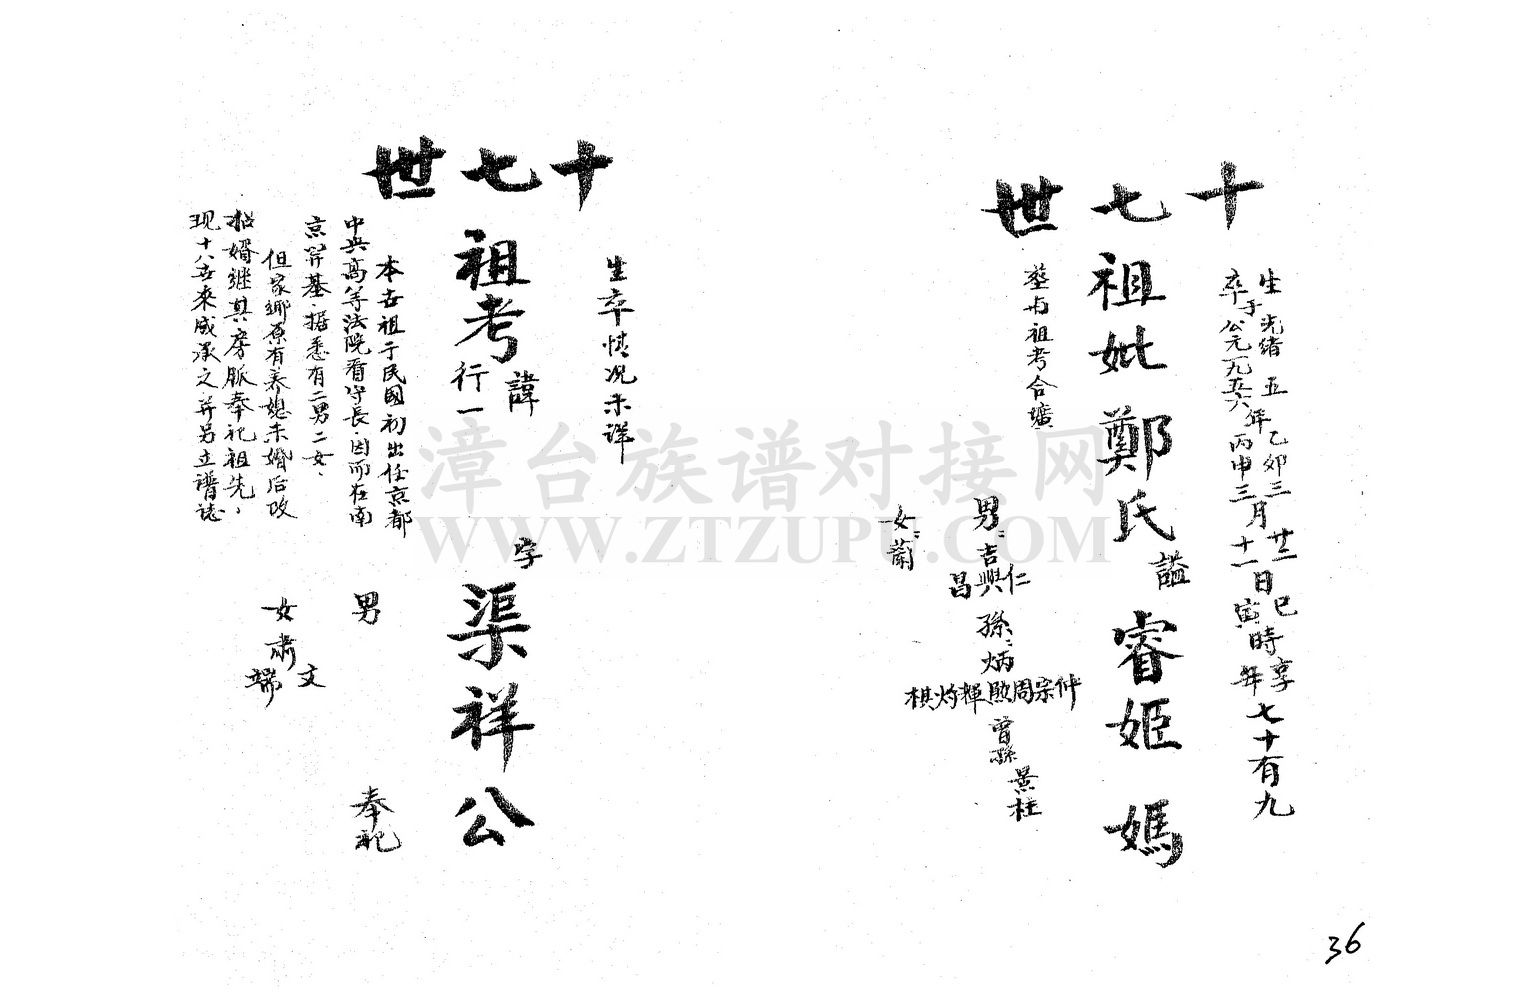 十七世
生光緒五年乙卯三月廿二日巳時享年七十有九
卒于公元一九五六年丙申三月十一日寅時
祖妣鄭氏謚睿姬媽
葬与祖考合壙
男：吉仁興昌
孫：炳仲宗周勳輝灼棋
曾孫景柱
女：蘭
十七世
生卒情况未詳
祖考諱字渠祥公
行一
本世祖于民國初出任京都
中央高等法院看守長·因而在南
京笄基·据悉有二男二女、
但家鄉原有养媳未婚后改
招婿继其房脈奉祀祖先，
现十八世來成承之并另立譜誌
男
奉祀
女肅文端
漳台族谱对接网
WWW.ZTZUPU.COM
36